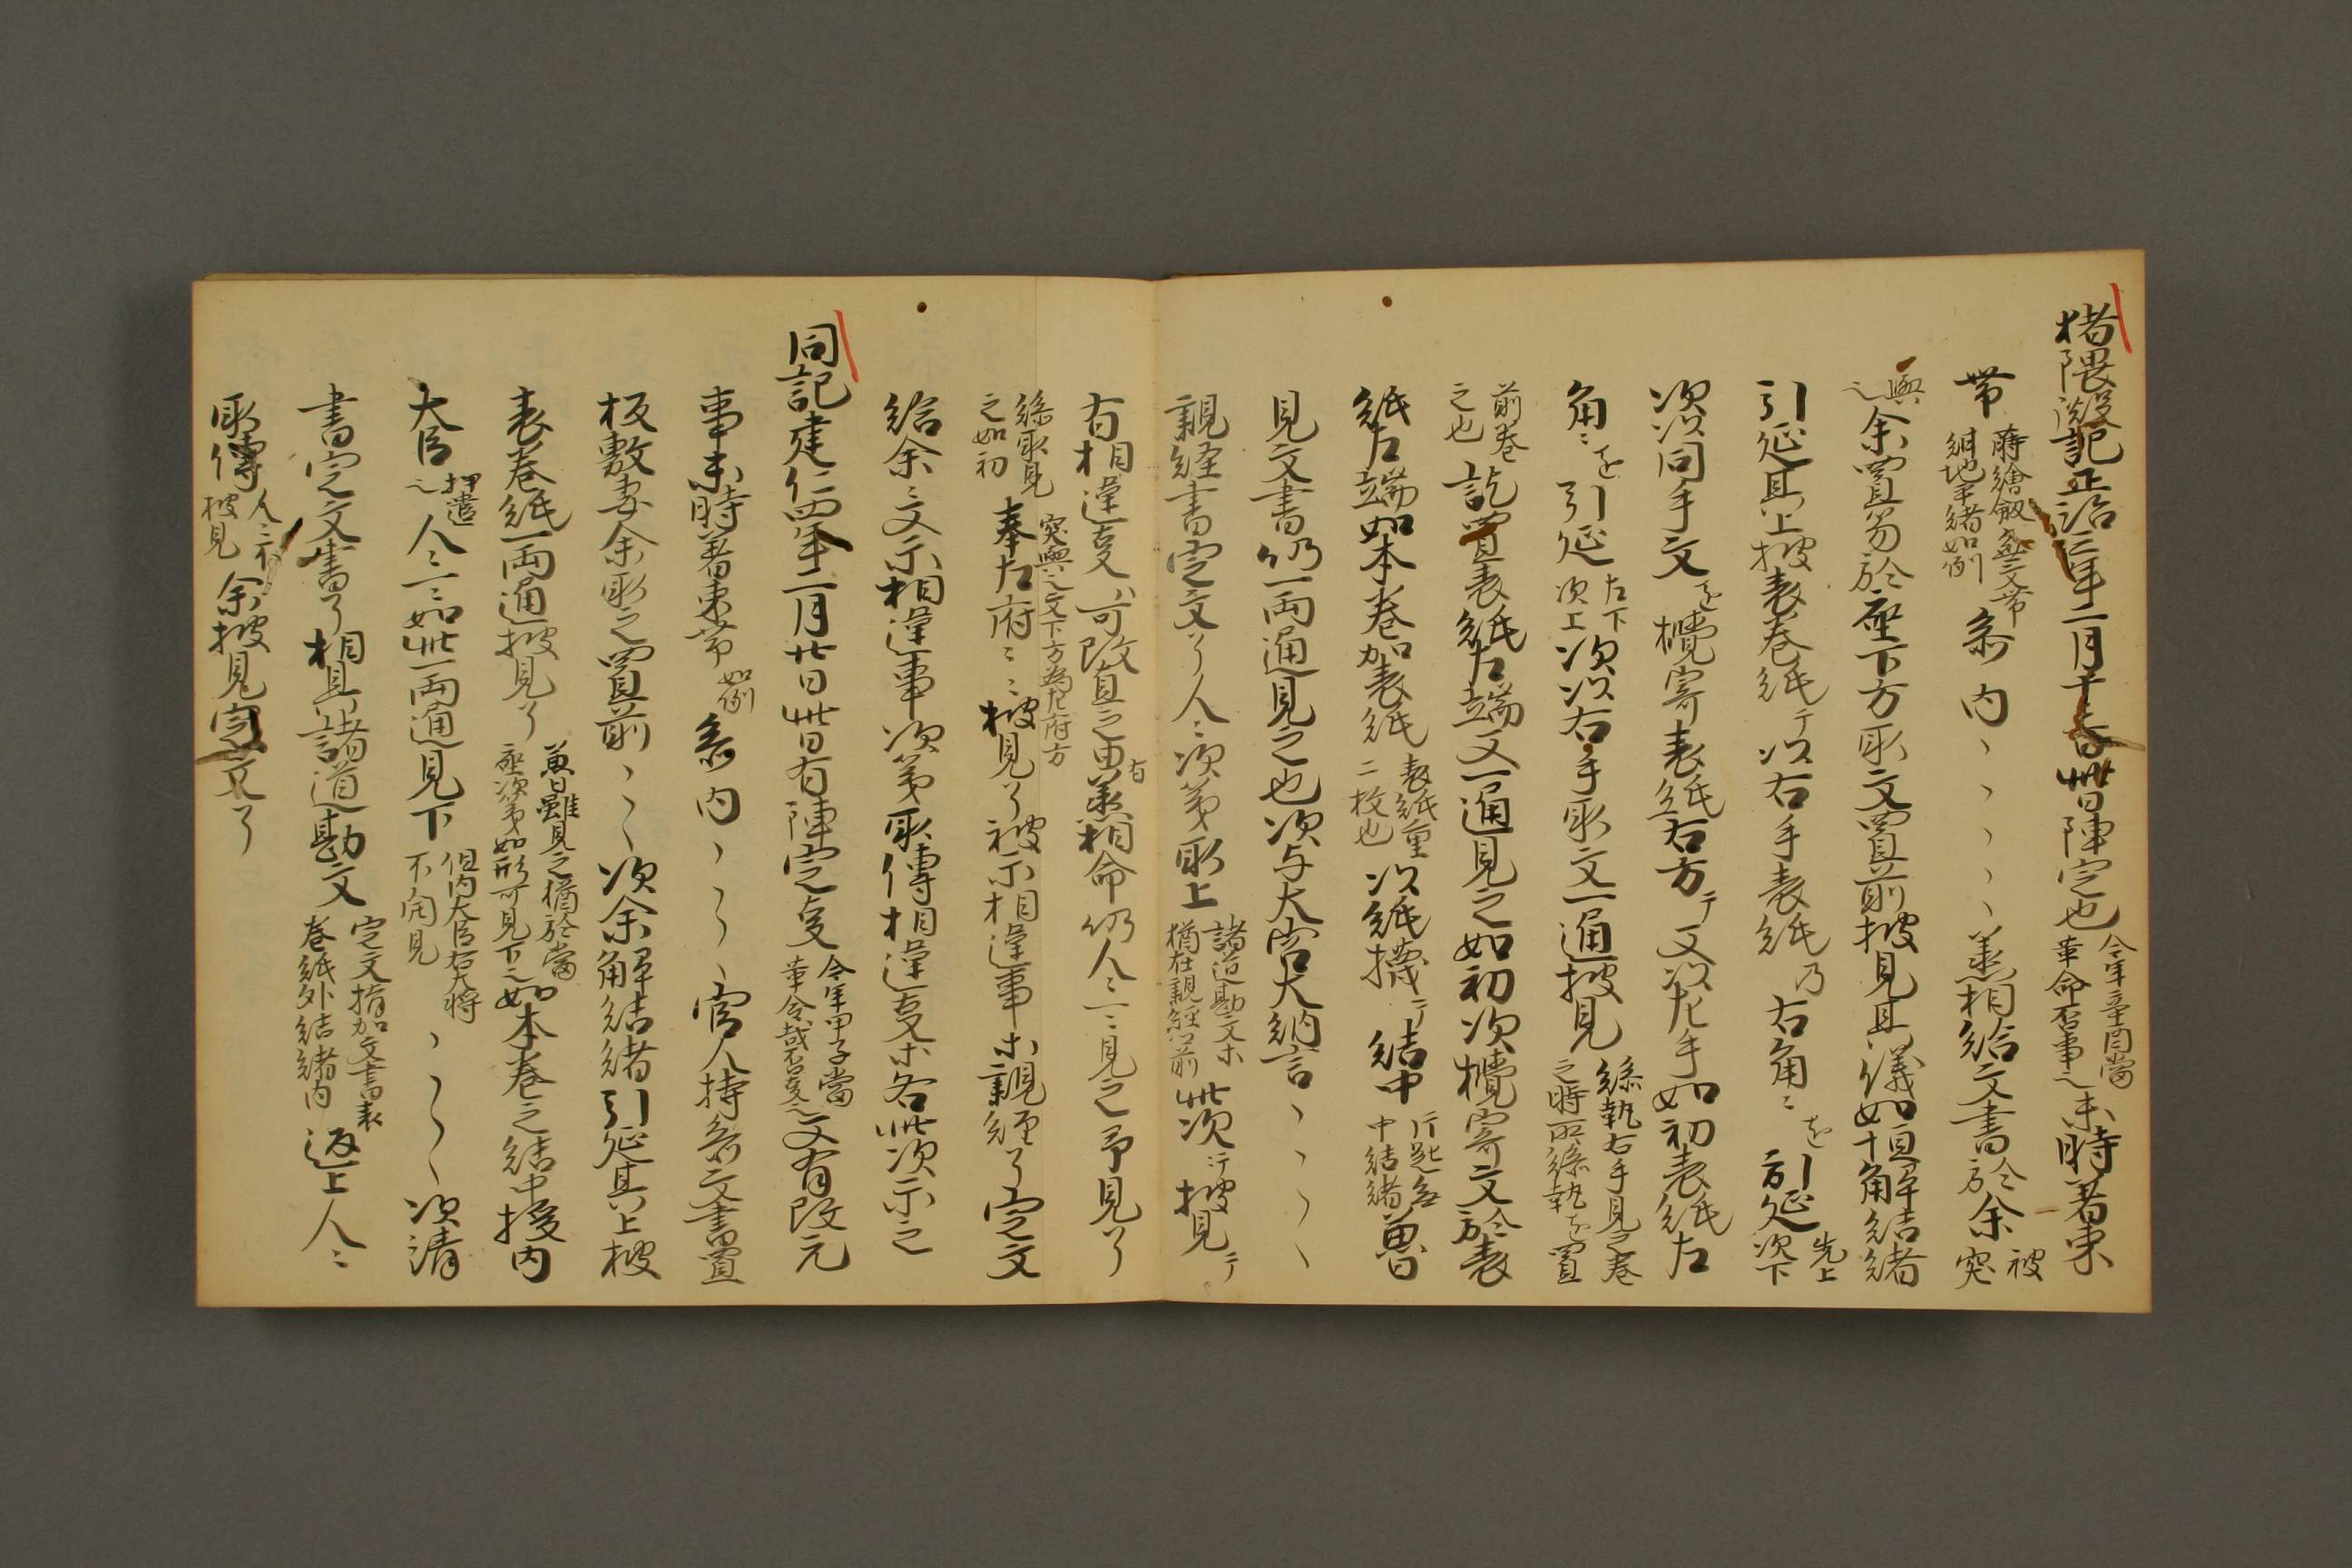 猪隈殿記正治三年二月十九日此日陣定也今年辛酉當革命否事也未時著束
帯蒔繪釼無文帯紺地平緒如例参内、、、、、兼相給文書於余被突
與之余置笏於座下方取文置前披見其儀如恒解結緒
引延其上披表巻紙テ以右手表紙乃右角ミを引延先上次下
次以同手文を欖寄表紙右方テ又以左手如初表紙左
角ミを引延左下次上次以右手取文一通披見係執右手見之巻之時取係執を置
前巻之也訖置表紙左端又一通見之如初次欖寄文於表
紙左端如本巻加表紙表紙重二枚也以紙捻テ結中片匙念中結緒曾
見文書仍一両通見之也次与大宮大納言、、、、
親経書定文了人ミ次第取上諸道勘文ホ猶在親経前此次テ披見テ
有相違事ハ可改直之由有兼相命仍人ミ一ミ見之予見了
係取見之如初突與之文下方為左府方奉左府ミ披見了被示相違事ホ親経了定文
給余ミ又示相違事次第取傳相違事ホ各此次示之
同記建仁四年二月廿日此日有陣定事今年甲子當革令哉否事也又有改元
事未時著束帯如例参内、、、、官人持参文書置
板敷妻余取之置前、、、次余解結緒引延其上披
表巻紙一両通披見了兼日雖見之猶於當座次第如形可見下之如本巻之結中授内
大臣押遣之人ミ一ミ如此一両通見下但内大臣右大将不開見、、、、次清
書定文書了相具諸道勘文定文指加文書表巻紙外結緒内返上人ミ
取傳人ミ不披見余披見定文了